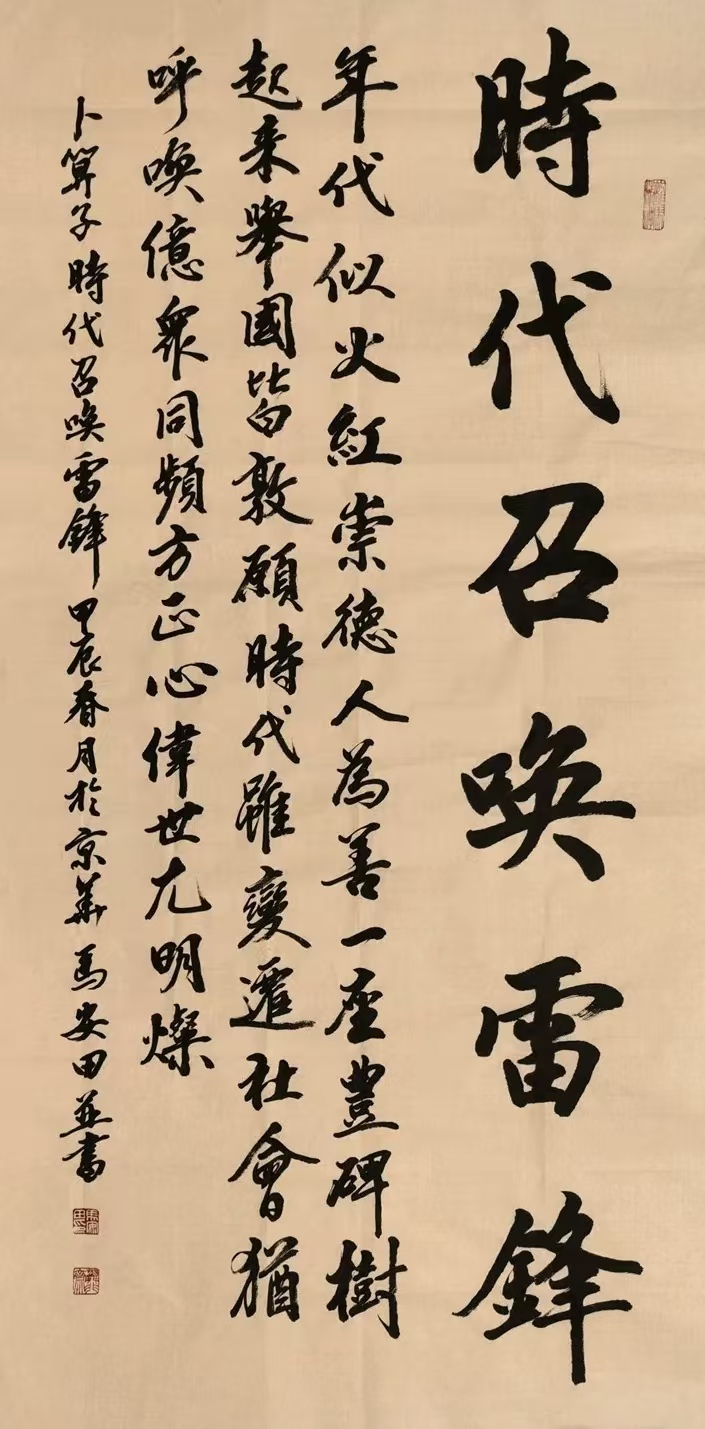 時代召唤雷鋒
年代似火紅崇德人為善一座豐碑樹
起来舉國皆敦願時代雖變遷社會猶
呼喚億衆同頻方正心偉世尤明燦
卜算子時代召唤雷鋒甲辰春月於京華馬安田並書